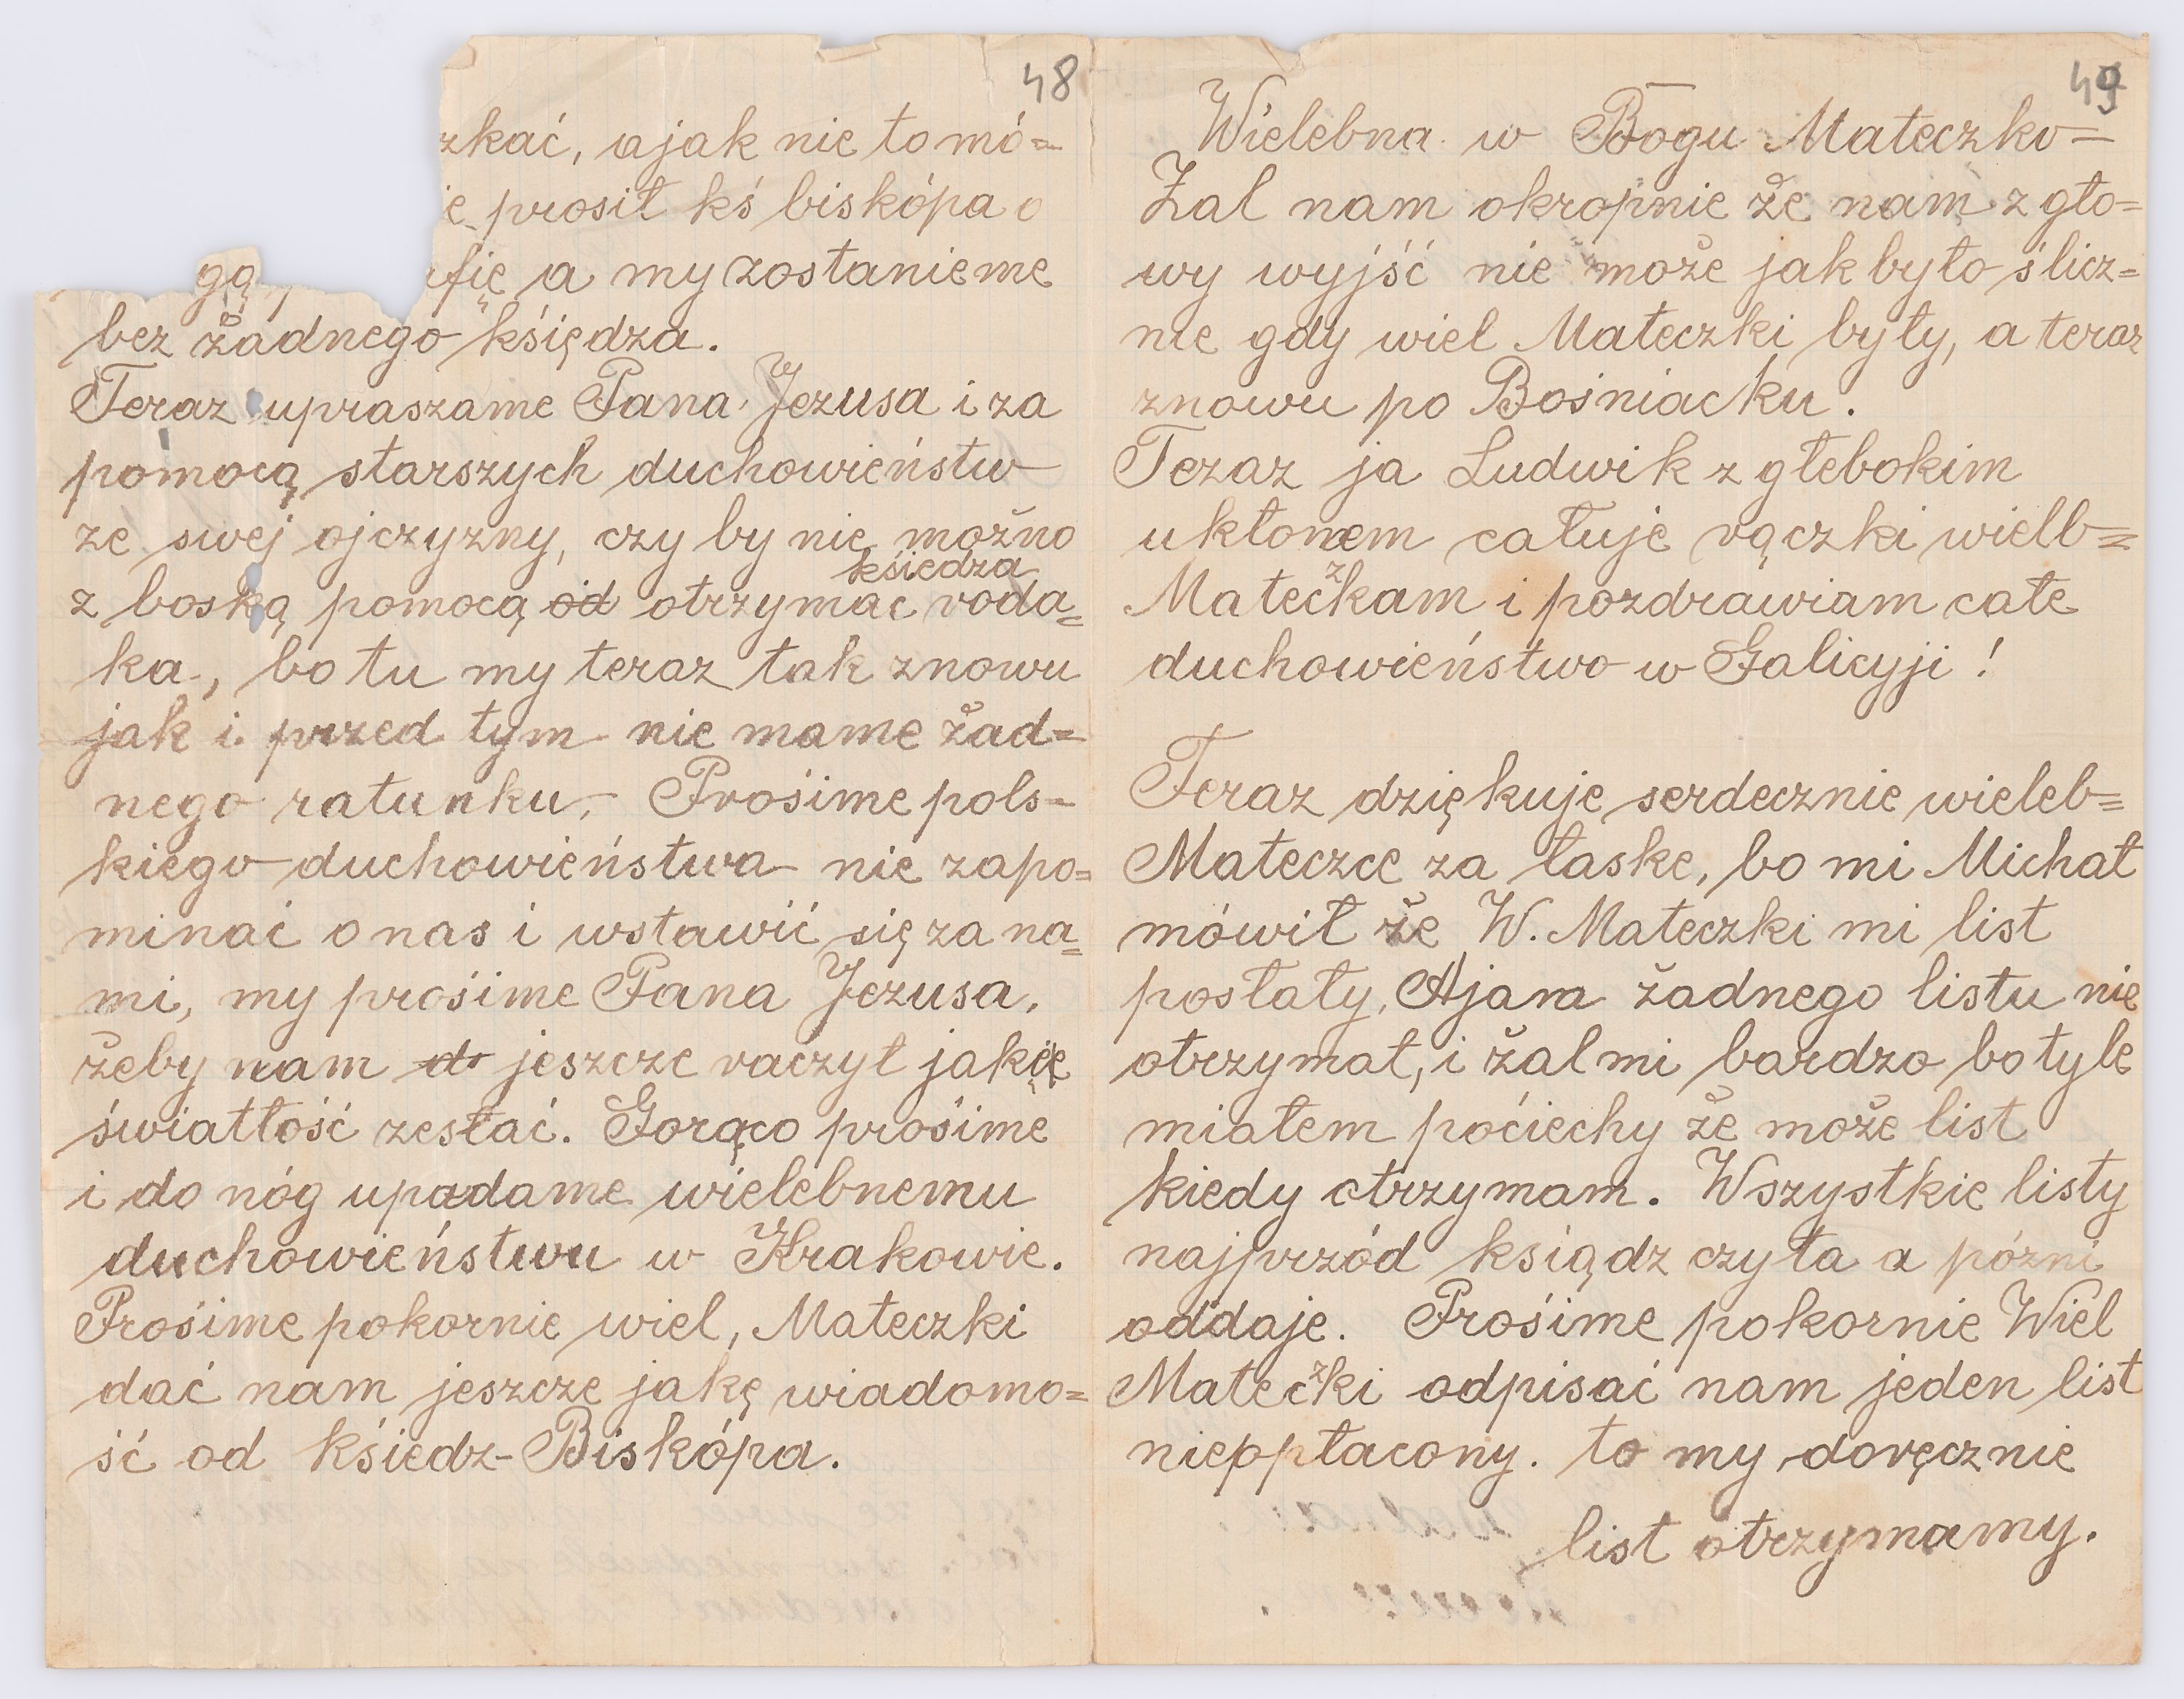 48
zkać, a jak nie to mó=
ie prosił kś biskópa o
gą afię a my zostanieme
bez žadnego kśiędza.
Teraz upraszame Pana Jezusa i za
pomocą starszych duchowieństw
ze swej ojczyzny, czy by nie možno
kśiedza
z boską pomocą od otrzymac roda=
ka, bo tu my teraz tak znowu
jak i przed tym nie mame žad=
nego ratunku. Prośime pols=
kiego duchowieństwa nie zapo=
minać o nas i wstawić się za na=
mi, my prośime Pana Jezusa,
žeby nam do jeszcze raczył jakię
światłość zesłać. Gorąco prośime
i do nóg upadame wielebnemu
duchowieństwu w Krakowie.
Prośime pokornie wiel, Mateczki
dać nam jeszcze jakę wiadomo=
ść od kśiedz-Biskópa.
49
Wielebna w Bogu Mateczko=
Žal nam okropnie že nam z gło=
wy wyjść nie može jak było ślicz=
nie gdy wiel Mateczki były, a teraz
znowu po Bośniacku.
Teraz ja Ludwik z głebokim
ukłonem całuje rączki wielb=
Mateczkam i pozdrawiam całe
duchowieństwo w Galicyji!
Teraz dziękuje serdecznie wieleb=
Mateczce za łaske, bo mi Michał
mówił že W. Mateczki mi list
posłały, Aja ra žadnego listu nie
otrzymał, i žal mi bardzo bo tyle
miałem poćiechy že može list
kiedy otrzymam. Wszystkie listy
najprzód ksiądz czyta a pózni
oddaje. Prośime pokornie Wiel
Mateczki odpisać nam jeden list
nieppłacony. to my doręcznie
list otrzymamy.